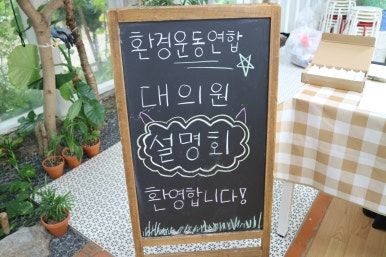 환경운동연합
대의원
설명회
환영합니다!